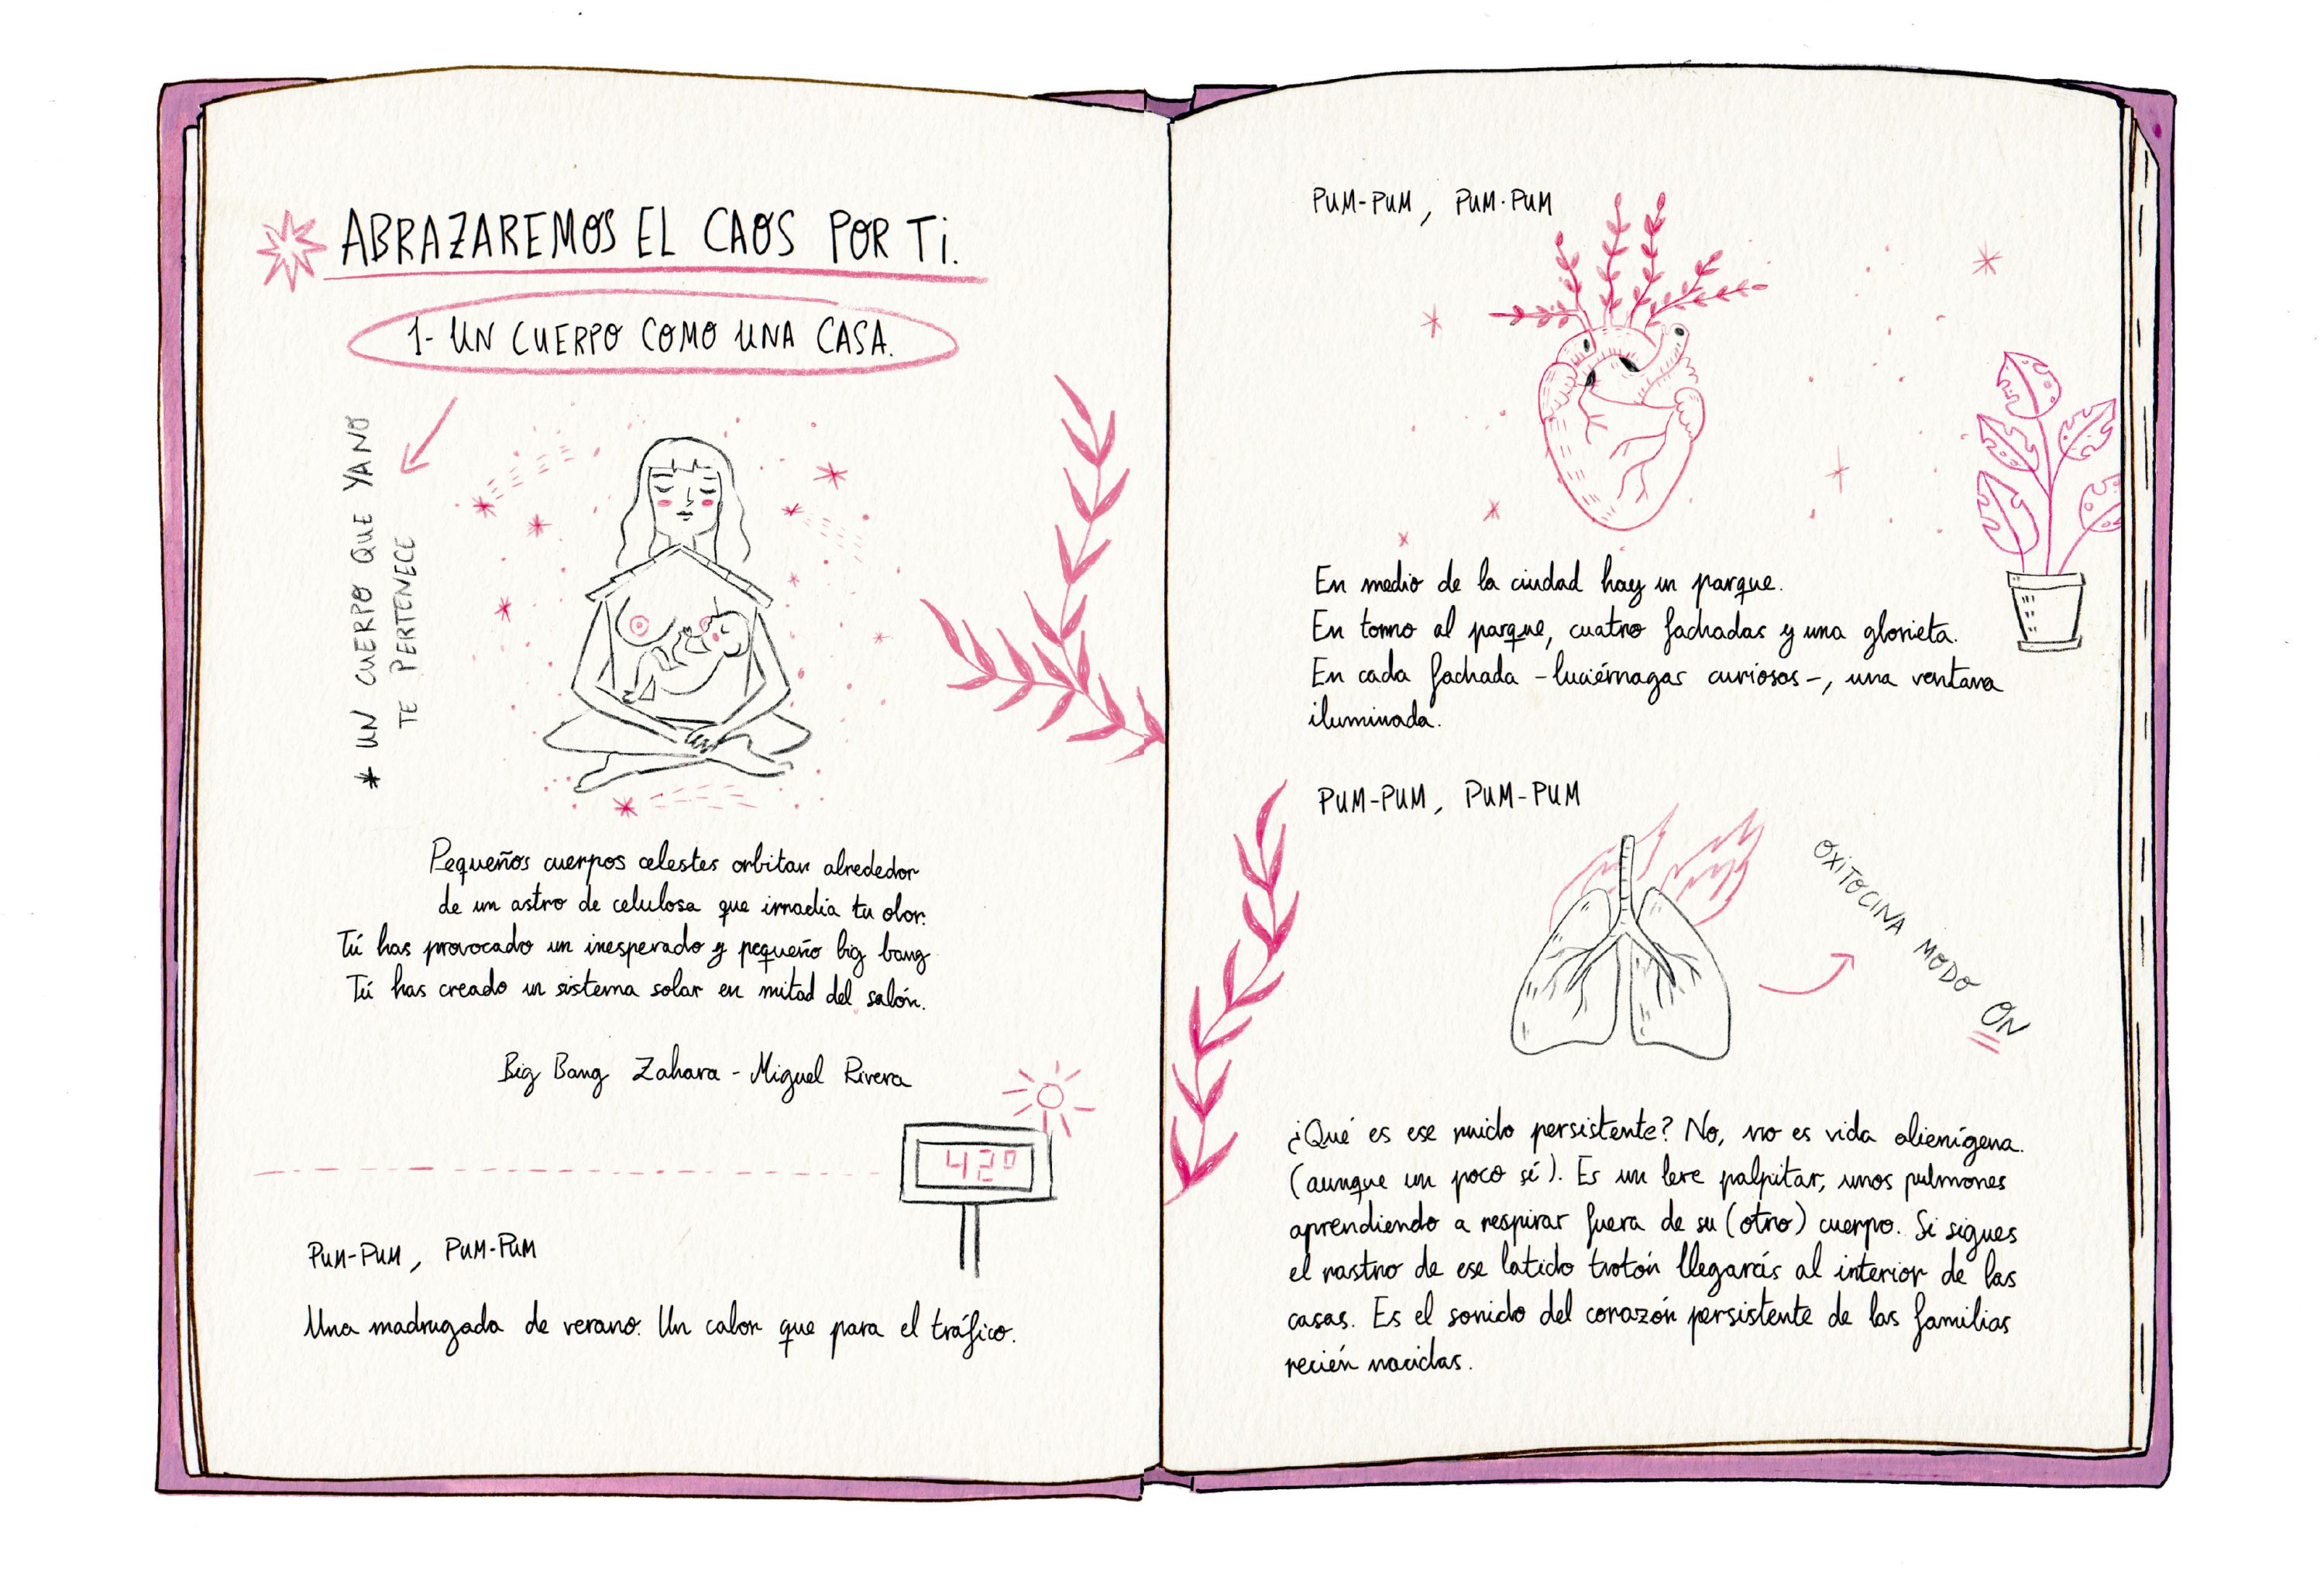 ABRAZAREMOS EL CAOS POR Ti.
1- UN CUERPO COMO UNA CASA.
* UN CUERPO QUE YA NO
TE PERTENECE
Pequeños cuerpos celestes orbitan alrededor
de un astro de celulosa que irradia tu olor.
Tú has provocado un inesperado y pequeño big bang
Tú has creado un sistema solar en mitad del salón.
Big Bang Zahara - Miguel Rivera
42º
PUM-PUM, PUM-PUM
Una madrugada de verano. Un calor que para el tráfico.
PUM-PUM, PUM-PUM
En medio de la ciudad hay un parque.
En torno al parque, cuatro fachadas y una glorieta.
En cada fachada -luciérnagas curiosas-, una ventana
iluminada.
PUM-PUM, PUM-PUM
OXiTOCiNA MODO ON
¿Qué es ese ruido persistente? No, no es vida alienígena.
(aunque un poco sí). Es un leve palpitar, unos pulmones
aprendiendo a respirar fuera de su (otro) cuerpo. Si sigues
el rastro de ese latido trotón llegarás al interior de las
casas. Es el sonido del corazón persistente de las familias
recién nacidas.